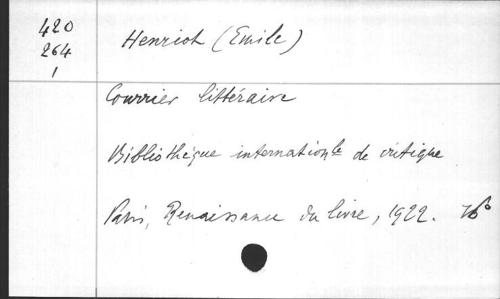 420
264
1
Henriot (Emile)
Courrier littéraire
Bibliothèque internationle de critique
Paris, Renaissance du livre, 1922.